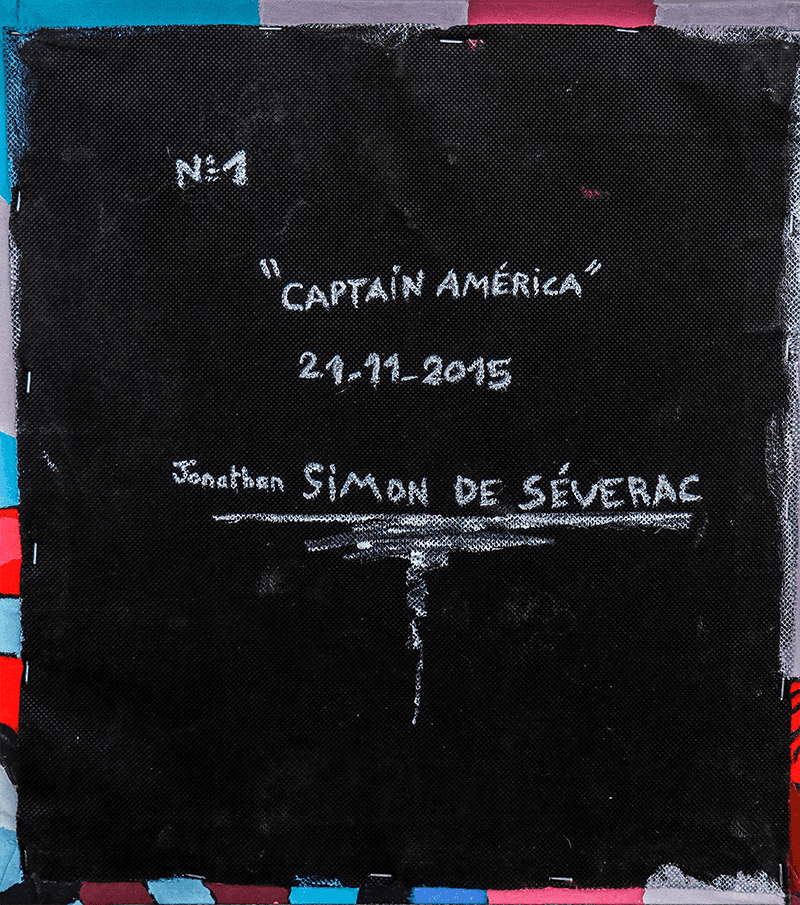 N=1
"CAPTAIN AMÉRICA"
21-11-2015
Jonathan SIMON DE SÉVERAC